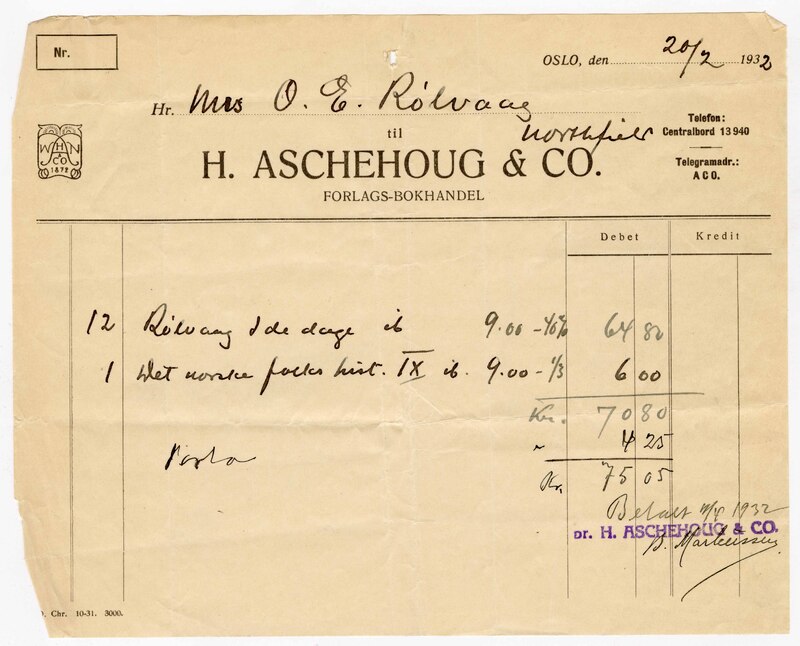 Nr.
OSLO, den 20/2 1932
Hr. Mrs O. E. Rölvaag
Northfield
til
H. ASCHEHOUG & CO.
FORLAGS-BOKHANDEL
Telefon:
Centralbord 13 940
Telegramadr.:
ACO.
W H A N
& CO
1872
Debet Kredit
12 Rölvaag I de dage ib 9.00 - 40% 64 80
1 Det norske folks hist. IX ib. 9.00 - 1/3 6 00
Kr. 70 80
Porto " 4 25
Kr. 75 05
Betalt 1932
pr. H. ASCHEHOUG & CO.
B. Martinssen
. Chr. 10-31. 3000.